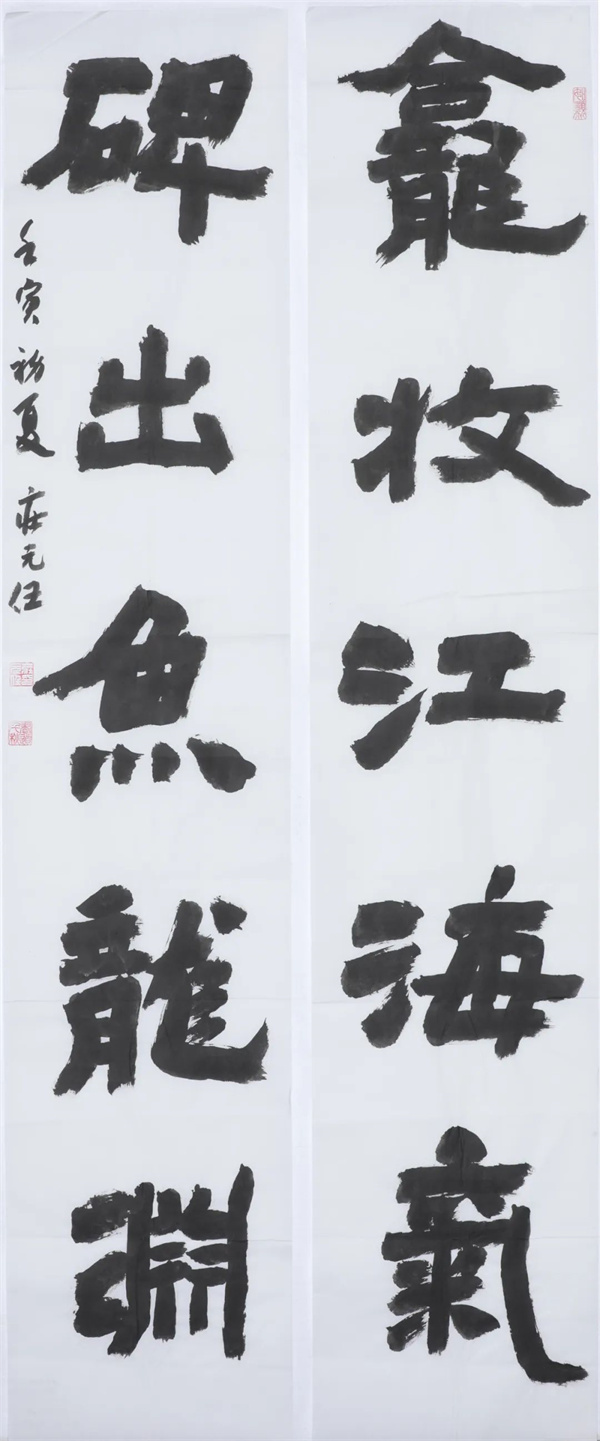 龕收江海氣
碑出魚龍淵
壬寅初夏 庄元任